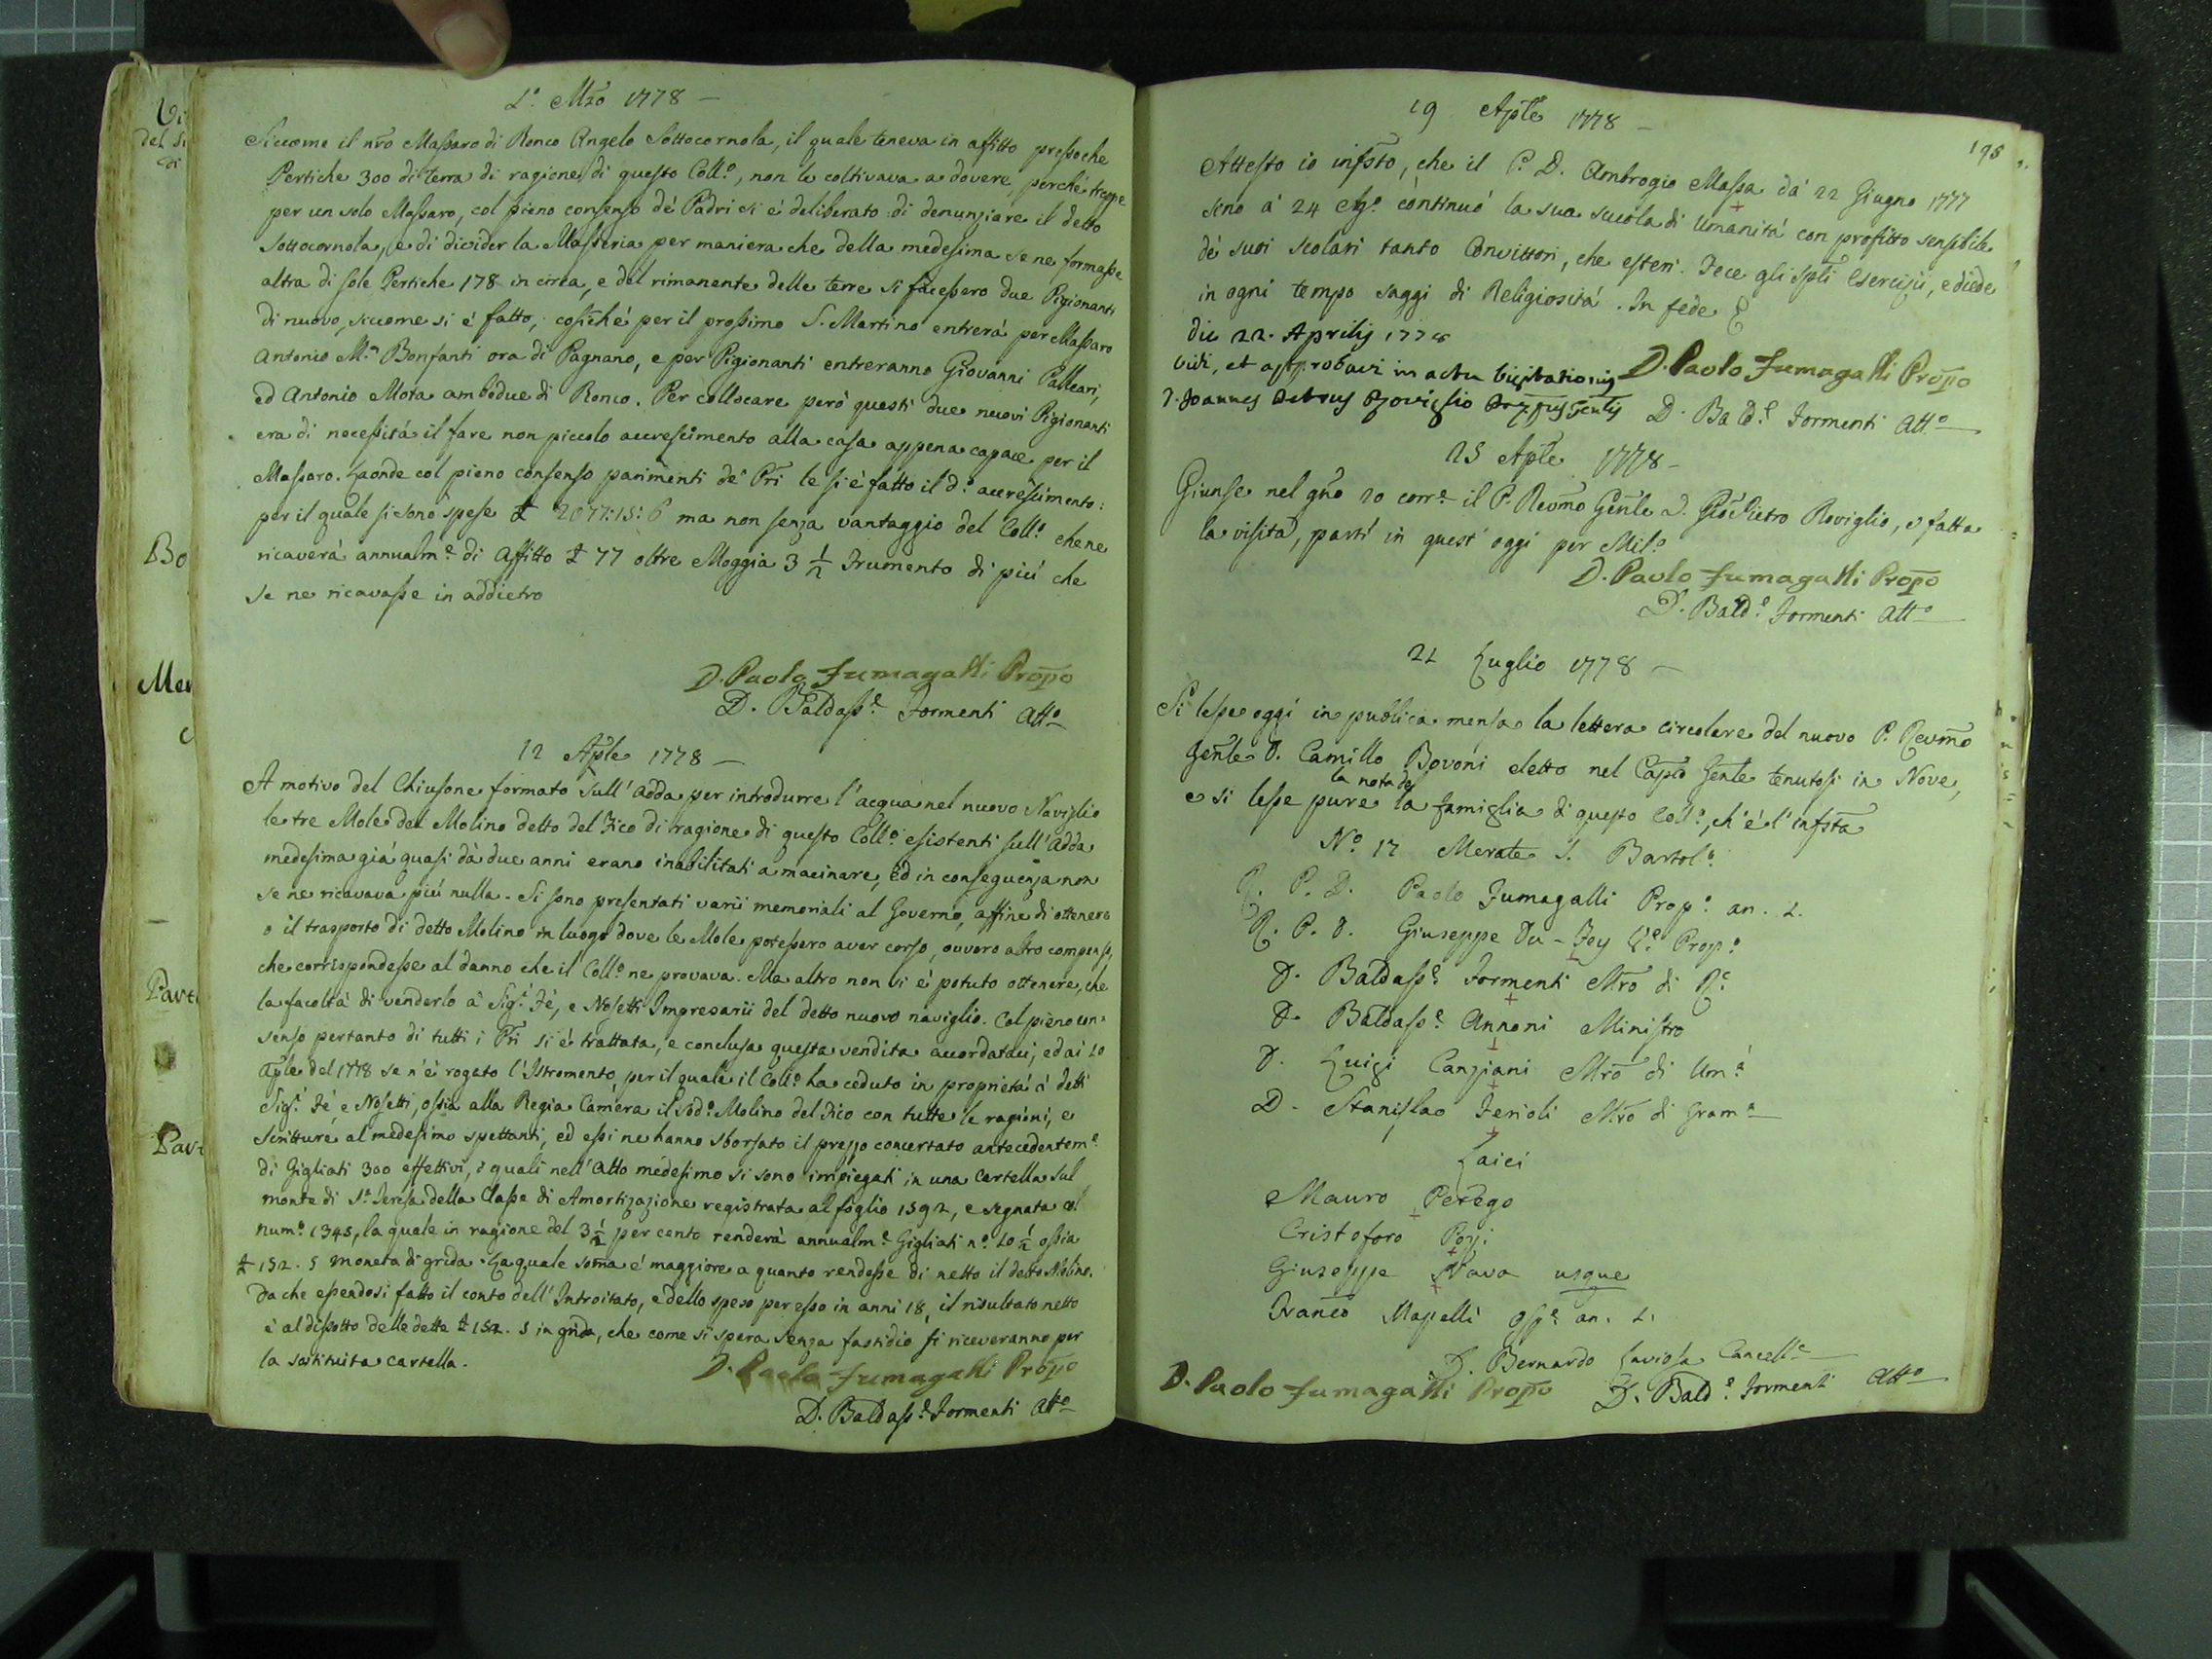 1.° Mzo 1778 —
Siccome il nro Massaro di Ronco Angelo Sottocornola, il quale teneva in affitto pressoche
Pertiche 300 di terra di ragione di questo Coll.°, non le coltivava a dovere, perché troppe
per un solo Massaro, col pieno consenso dé Padri si é deliberato di denunziare il detto
Sottocornola, e di divider la Masseria per maniera che della medesima se ne formasse
altra di sole Pertiche 178 in circa, e del rimanente delle terre si facessero due Pigionanti
di nuovo, siccome si é fatto, cosicché per il prossimo S. Martino entrerá per Massaro
Antonio M.a Bonfanti ora di Pagnano, e per Pigionanti entreranno Giovanni Palleari,
ed Antonio Mota ambidue di Ronco. Per collocare peró questi due nuovi Pigionanti
era di necessitá il fare non piccolo accrescimento alla casa appena capace per il
Massaro. Laonde col pieno consenso parimenti de' Pri le si è fatto il d.° accrescimento:
per il quale si sono spese £ 2077:15:6 ma non senza vantaggio del Coll.° che ne
ricaverá annualm.e di affitto £ 77 oltre Moggia 3 1/2 Frumento di piú che
se ne ricavasse in addietro
D. Paolo Fumagalli Propo
D. Baldass.e Formenti Att.o
12 Aple 1778 —
A motivo del Chiusone formato sull'Adda per introdurre l'acqua nel nuovo Naviglio
le tre Mole del Molino detto del Fico di ragione di questo Coll.° esistenti sull'Adda
medesima giá quasi dà due anni erano inabilitati a macinare, ed in conseguenza non
se ne ricavava piú nulla. Si sono presentati varii memoriali al Governo, affine di ottenere
o il trasporto di detto Molino in luogo dove le Mole potessero aver corso, ovvero altro compenso,
che corrispondesse al danno che il Coll.° ne provava. Ma altro non si é potuto ottenere, che
la facoltà di venderlo a' Sig.i Fé, e Nosetti Impresarii del detto nuovo naviglio. Col pieno con-
senso pertanto di tutti i Pri si è trattata, e conclusa questa vendita accordataci, ed ai 10
aple del 1778 se n'è rogato l'Istromento, per il quale il Coll.° ha ceduto in proprietá a' detti
Sig.i Fé e Nosetti, ossia alla Regia Camera il sod.° Molino del Fico con tutte le ragioni, e
Scritture al medesimo spettanti, ed essi ne hanno sborsato il prezzo concertato antecedentem.e
di Gigliati 300 effettivi, i quali nell'atto medesimo si sono impiegati in una Cartella sul
monte di S.a Teresa della Classe di Amortizazione registrata al foglio 1592, e segnata al
num.° 1345, la quale in ragione del 3 1/2 per cento renderà annualm.e Gigliati n.° 10 1/2 ossia
£ 152. 5 moneta di grida. La quale soma é maggiore a quanto rendesse di netto il detto Molino.
Da che essendosi fatto il conto dell'Introitato, e dello speso per esso in anni 18, il risultato netto
è al dissotto delle dette £ 152. 5 in grida, che come si spera senza fastidio si riceveranno per
la sostituita cartella.
D. Paolo Fumagalli Propo
D. Baldass.e Formenti Att.o
195
19 Aple 1778 —
Attesto io infsto, che il P. D. Ambrogio Massa dà 22 Giugno 1777
sino a' 24 continuó la sua scuola di Umanitá con profitto sensibile
dé suoi scolari tanto Convittori, che esteri. Fece gli spli Esercizii, e diede
in ogni tempo saggi di Religiositá. In fede &
die 22. Aprilis 1778
vidi, et approbavi in actu visitationis D. Paolo Fumagalli Propo
D. Joannes Petrus Roviglio D. Bald.e Formenti Att.o
25 Aple 1778 —
Giunse nel gno 20 corr.e il P. Revmo Genle D. Gio Pietro Roviglio, e fatta
la visita, partí in quest'oggi per Mil.o
D. Paolo Fumagalli Propo
D. Bald.e Formenti Att.o
21 Luglio 1778 —
Si lesse oggi in publica mensa la lettera circolare del nuovo P. Revmo
Genle D. Camillo Bovoni eletto nel Caplo Genle tenutosi in Nove,
e si lesse pure la nota della famiglia di questo Coll.°, ch'é l'infsta
N.° 17 Merate S. Bartol.o
R. P. D. Paolo Fumagalli Prop.o an. 1.
R. P. D. Giuseppe Du-Fey V.e Prop.o
D. Baldass.e Formenti Mro di R.a
D. Baldass.e Annoni Ministro
D. Luigi Canziani Mro di Um.a
D. Stanislao Ferioli Mro di Gram.a
Laici
Mauro Perego
Cristoforo Pozzi
Giuseppe Nava usque
Franco Mapelli Osp.e an. 1.
D. Bernardo Laviosa Cancell.e
D. Paolo Fumagalli Propo D. Bald.e Formenti Att.o
Bo
Mer
Part
Part